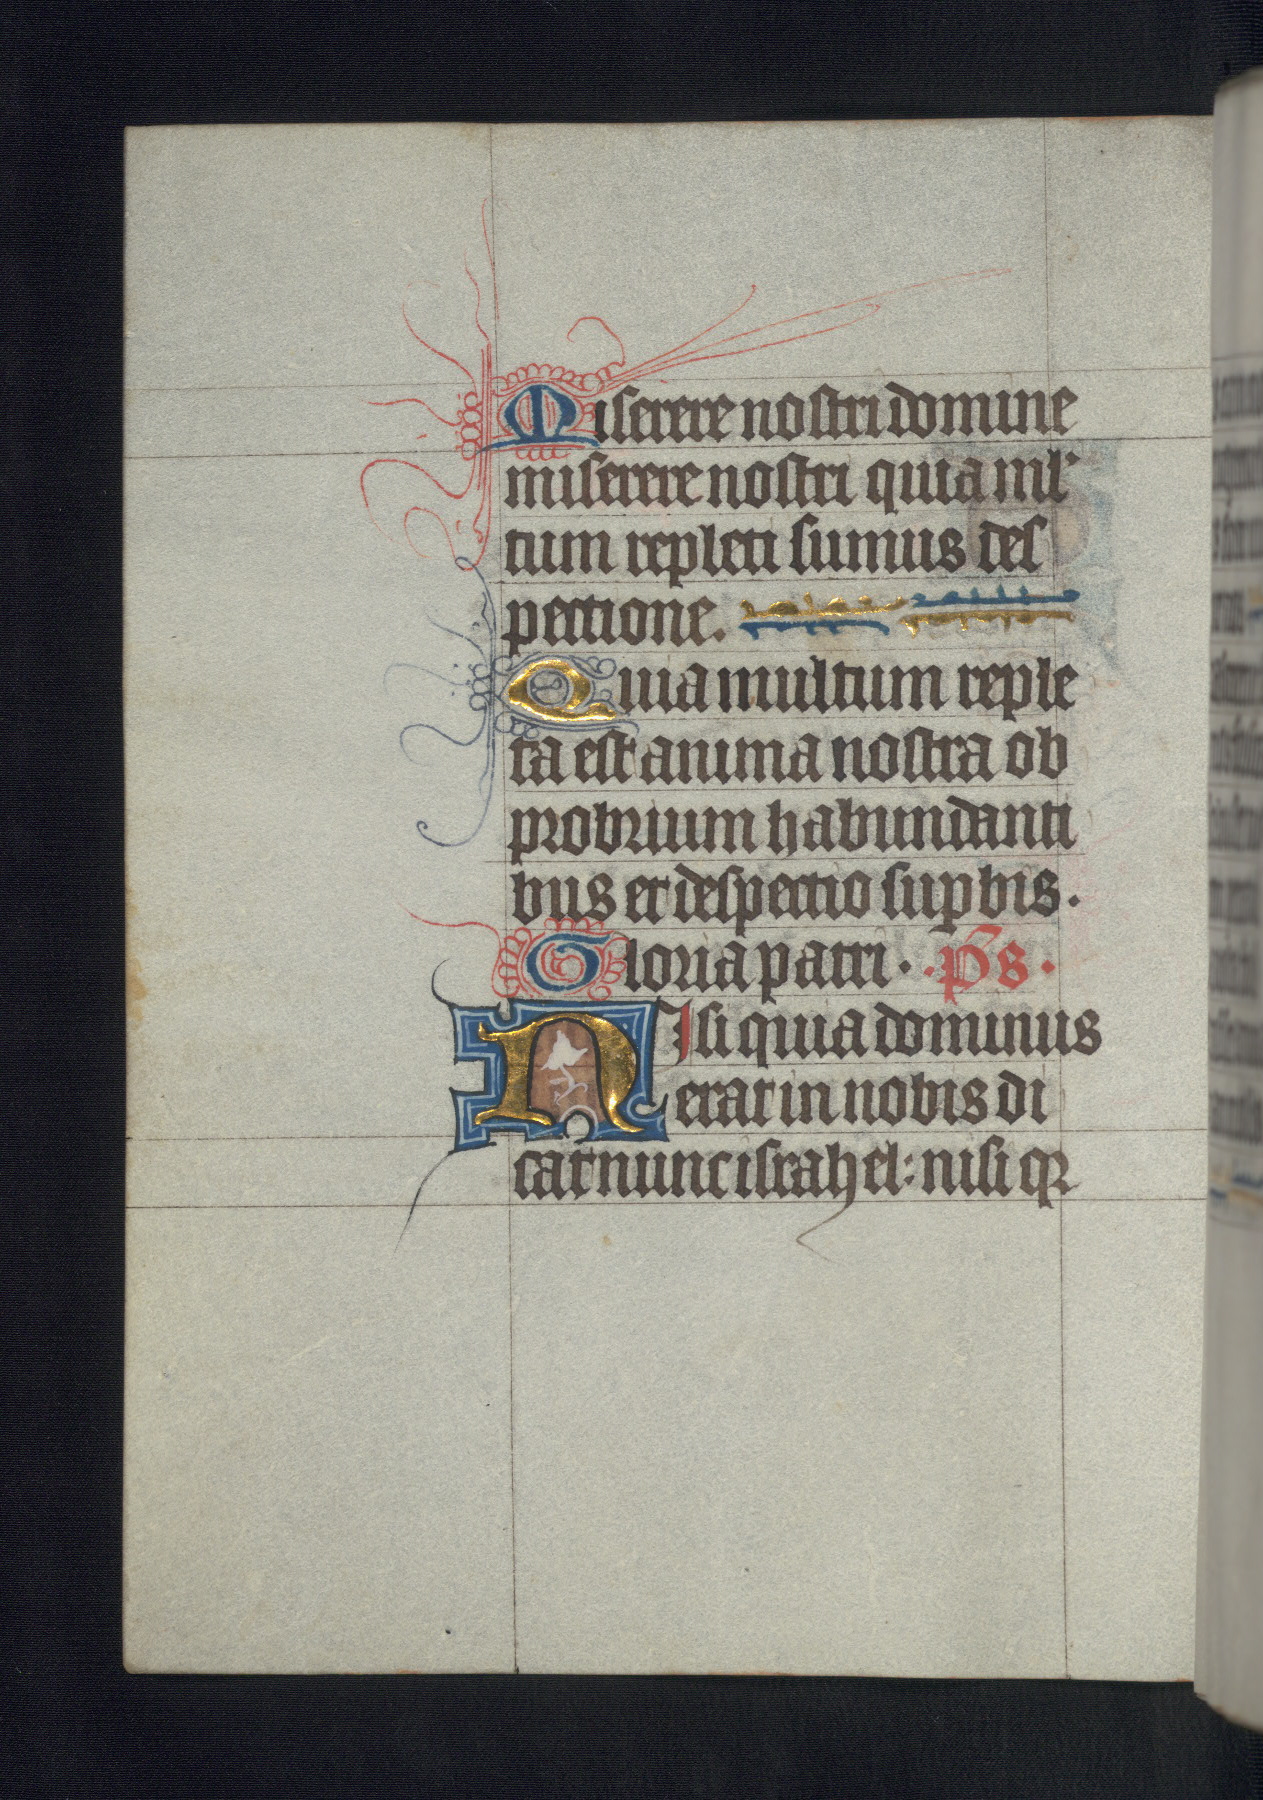 Miserere nostri domine
miserere nostri quia ml᾽
tum repleti sumus des
pectione.
Quia multum reple
ta est anima nostra ob
probrium habundanti
bus et despectio supbis.
Gloria patri. .ps.
NIsi quia dominus
erat in nobis di
cat nunc israhel: nisi qꝛ